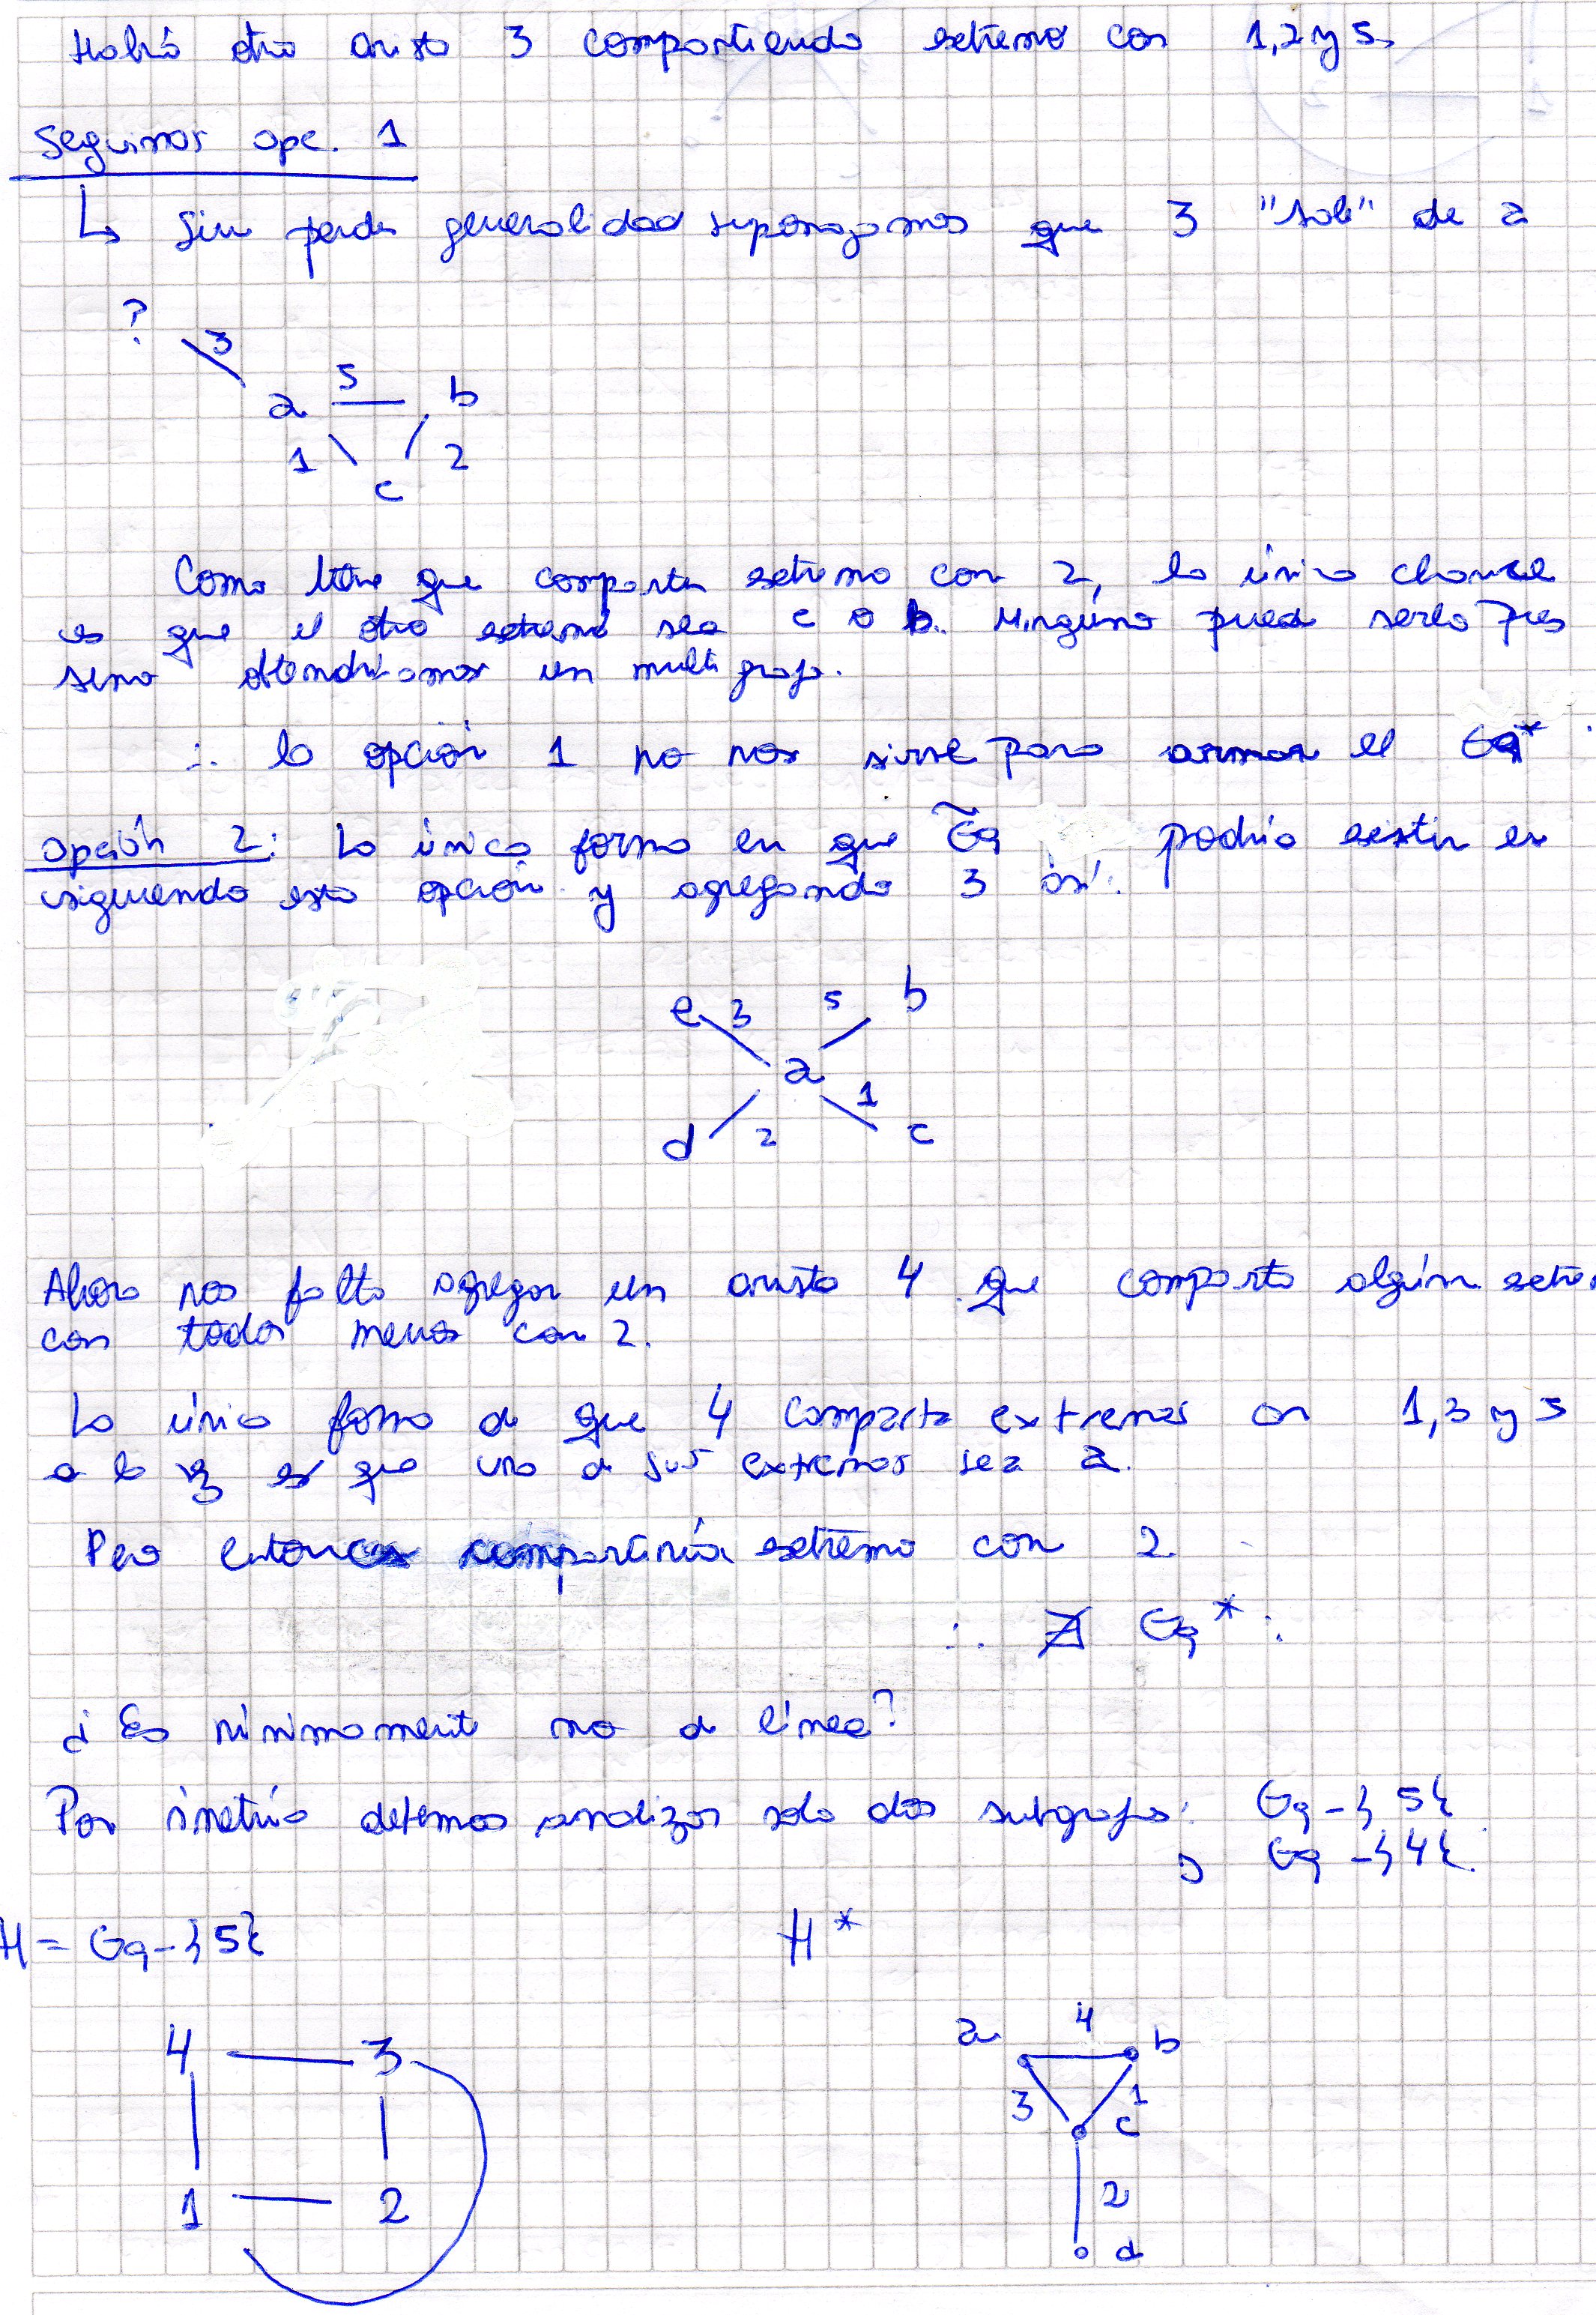 Habrá otra arista 3 compartiendo extremo con 1, 2 y 5.
Seguimos opc. 1
↳ Sin perder generalidad supongamos que 3 "sale" de a
?
3
a 5 b
1 2
c
Como tiene que compartir extremo con 2, la única chance
es que el otro extremo sea c o b. Ninguno puede serlo pues
sino obtendríamos un multigrafo.
∴ la opción 1 no nos sirve para armar el G9*
opción 2: La única forma en que G̃9 podría existir es
siguiendo esta opción y agregando 3 así:
e 3 5 b
a
1
d 2 c
Ahora nos falta agregar un arista 4 que comparta algún
con todos menos con 2.
La única forma de que 4 comparta extremos con 1, 3 y 5
a la vez es que uno de sus extremos sea a.
Pero entonces compartiría extremo con 2
∴ ∄ G9*.
¿Es minimamente no de línea?
Por simetría debemos analizar solo dos subgrafos: G9 - {5}
G9 - {4}
H = G9 - {5} H*
4 3
1 2
a 4 b
3 1
c
2
d